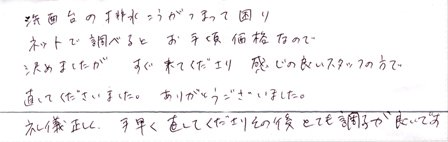 洗面台の排水こうがつまって困り
ネットで調べると お手頃価格なので
決めましたが すぐ来てくださり 感じの良いスタッフの方で
直してくださいました。 ありがとうございました。
礼儀正しく 手早く直してくださりその後とても調子が良いです